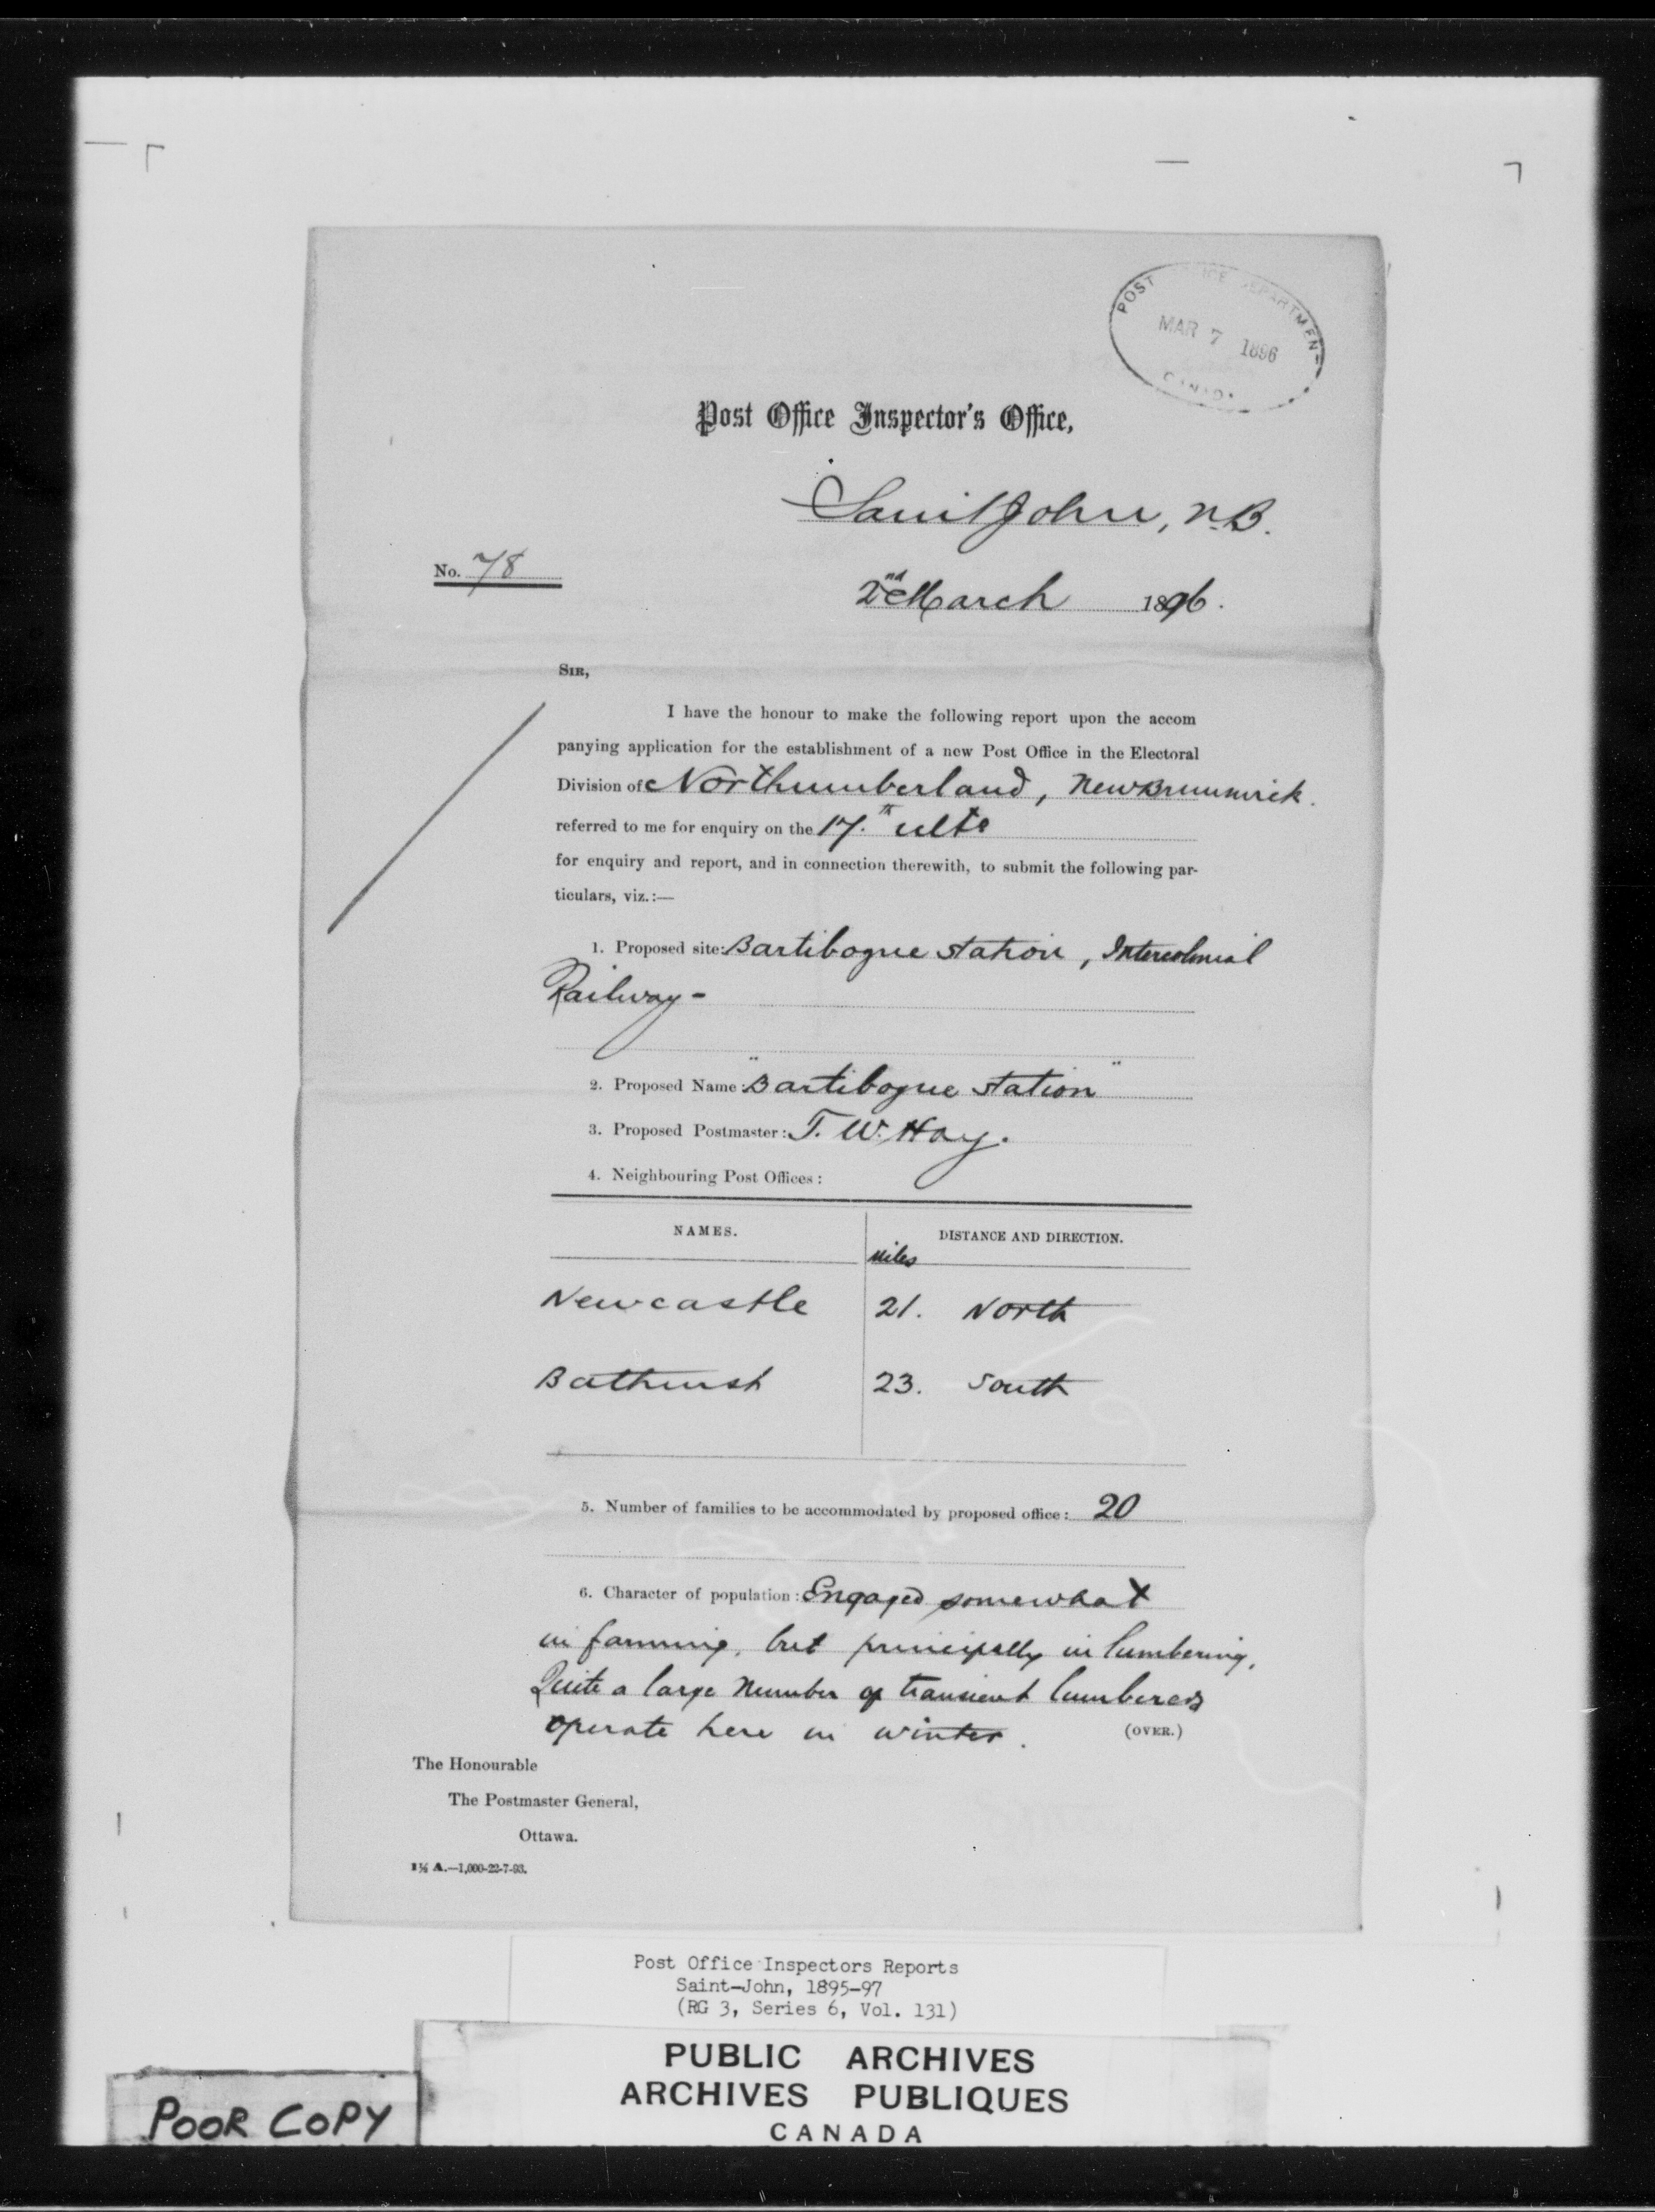 POST OFFICE DEPARTMENT
MAR 7 1896
CANADA
Post Office Inspector's Office,
Saint John, N.B.
No. 78
2nd March 1896.
SIR,
I have the honour to make the following report upon the accom
panying application for the establishment of a new Post Office in the Electoral
Division of Northumberland, New Brunswick.
referred to me for enquiry on the 17.th ulto
for enquiry and report, and in connection therewith, to submit the following par-
ticulars, viz.:—
1. Proposed site: Bartibogue Station, Intercolonial
Railway-
2. Proposed Name: "Bartibogue Station"
3. Proposed Postmaster: T. W. Hay.
4. Neighbouring Post Offices:
NAMES. DISTANCE AND DIRECTION.
miles
Newcastle 21. North
Bathurst 23. South
5. Number of families to be accommodated by proposed office: 20
6. Character of population: Engaged somewhat
in farming, but principally in lumbering,
Quite a large number of transient lumberers
operate here in winter.
(OVER.)
The Honourable
The Postmaster General,
Ottawa.
1½ A.—1,000-22-7-93.
Post Office Inspectors Reports
Saint-John, 1895-97
(RG 3, Series 6, Vol. 131)
PUBLIC ARCHIVES
ARCHIVES PUBLIQUES
CANADA
POOR COPY